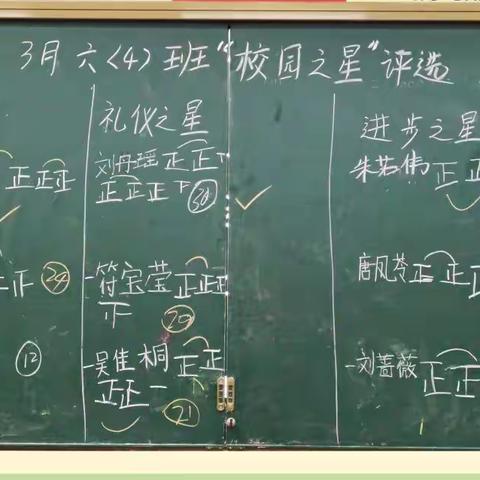 3月六〈4〉班“校园之星”评选
正正正
正 24
12
礼仪之星
刘丹瑶 正正丅
正正正丅 30
符宝莹 正正正
正
20
吴佳桐 正正
正正一
21
进步之星
朱若伟 正正
唐凤苓 正正正
刘蔷薇 正正